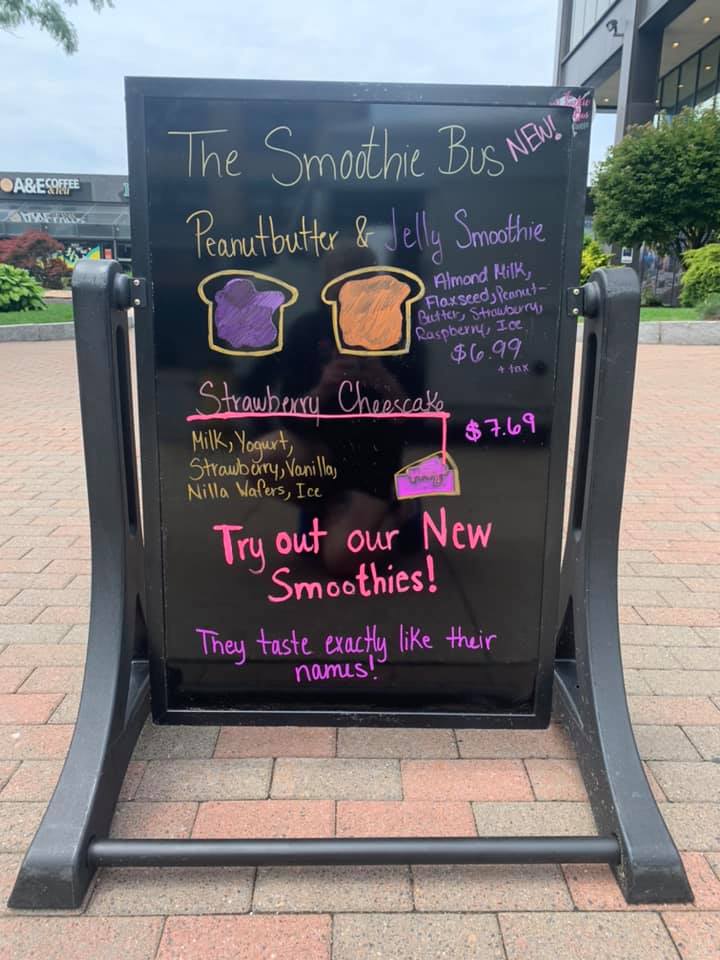 A&E COFFEE
& TEA
The Smoothie Bus NEW!
Peanutbutter & Jelly Smoothie
Almond Milk,
Flaxseed, Peanut-
Butter, Strawburry,
Raspberry, Ice
$6.99
+ tax
Strawberry Cheescake
$7.69
Milk, Yogurt,
Strawburry, Vanilla,
Nilla Wafers, Ice
Try out our New
Smoothies!
They taste exactly like their
names!